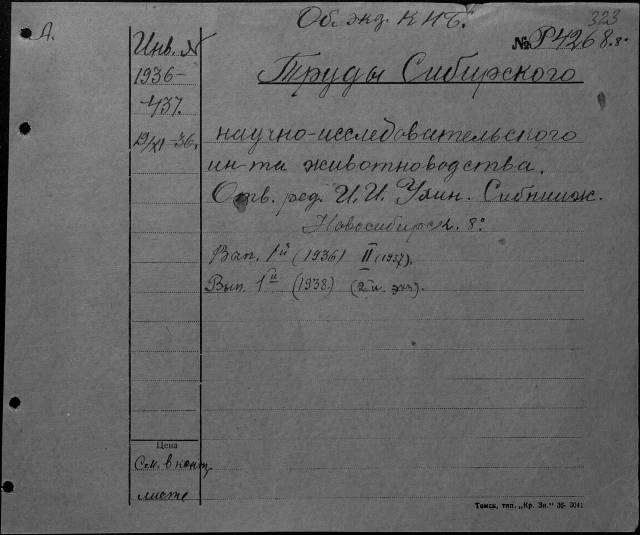 323
Об. экд. КНБ.
А.
№ Р4268. 8°
Инв. №
1936-
437.
19/XI-36.
Труды Сибирского
научно-исследовательского
ин-та животноводства.
Отв. ред. И. И. Улин. Сибниож.
Новосибирск. 8°
Вып. 1й (1936) II (1937).
Вып. 1й (1938) (2й. экз).
Цена
См. в конт.
листе
Томск, тип. „Кр. Зн." 36- 3041